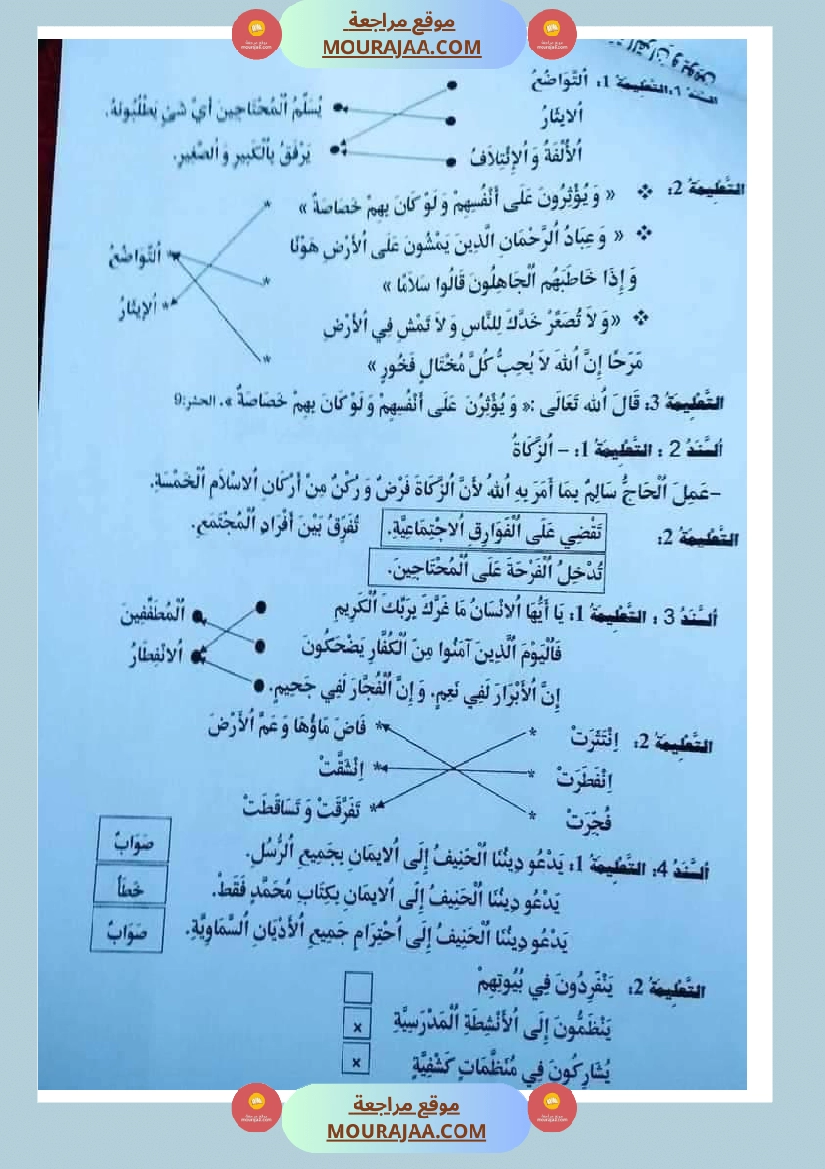 موقع مراجعة
MOURAJAA.COM
السند 1، التعليمة 1: اُلتَّوَاضُعُ
يُسَلِّمُ اُلْمُحْتَاجِينَ أَيَّ شَيْءٍ يَطْلُبُونَهُ.
اُلايثَارُ
اُلأُلْفَةُ وَ اُلإِئْتِلاَفُ
يَرْفَقُ بِاُلْكَبِيرِ وَ اُلصَّغِيرِ.
التَّعلِيمَةُ 2: ❖ « وَ يُؤْثِرُونَ عَلَى أَنْفُسِهِمْ وَ لَوْ كَانَ بِهِمْ خَصَاصَةٌ »
❖ « وَ عِبَادُ اُلرَّحْمَانِ اُلَّذِينَ يَمْشُونَ عَلَى اُلأَرْضِ هَوْنًا
وَ إِذَا خَاطَبَهُم اُلْجَاهِلُونَ قَالُوا سَلاَمًا »
❖ «وَ لاَ تُصَعِّرْ خَدَّكَ لِلنَّاسِ وَ لاَ تَمْشِ فِي اُلأَرْضِ
مَرَحًا إِنَّ اُللهَ لاَ يُحِبُّ كُلَّ مُخْتَالٍ فَخُورٍ »
* اُلتَّوَاضُعُ
* اُلإيثَارُ
التَّعلِيمَةُ 3: قَالَ اُلله تَعَالَى :« وَ يُؤْثِرُنَ عَلَى أَنْفُسِهِمْ وَ لَوْ كَانَ بِهِمْ خَصَاصَةٌ ». الحشر:9
اُلسَّنَدُ 2 : التَّعلِيمَةُ 1: – اُلزَّكَاةُ
–عَمِلَ اُلْحَاجُّ سَالِمٌ بِمَا أَمَرَ بِهِ اُللهُ لأَنَّ اُلزَّكَاةَ فَرْضٌ وَ رُكْنٌ مِنْ أَرْكَانِ اُلاسْلاَمِ اُلْخَمْسَةِ.
التَّعلِيمَةُ 2: تَقْضِي عَلَى اُلْفَوَارِقِ اُلاجْتِمَاعِيَّةِ. تُفَرِّقُ بَيْنَ أَفْرَادِ اُلْمُجْتَمَعِ.
تُدْخِلُ اُلْفَرْحَةَ عَلَى اُلْمُحْتَاجِينَ.
اُلسَّنَدُ 3 : التَّعلِيمَةُ 1: يَا أَيُّهَا اُلانْسَانُ مَا غَرَّكَ بِرَبِّكَ اُلْكَرِيمِ
اُلْمُطَفِّفِينَ
فَاُلْيَوْمَ اُلَّذِينَ آمَنُوا مِنَ اُلْكُفَّارِ يَضْحَكُونَ
اُلانْفِطَارُ
إِنَّ اُلأَبْرَارَ لَفِي نَعِمٍ. وَ إِنَّ اُلْفُجَّارَ لَفِي جَحِيمٍ.
التَّعلِيمَةُ 2: اِنْتَثَرَتْ * * فَاضَ مَاؤُهَا وَ عَمَّ اُلأَرْضَ
اِنْفَطَرَتْ * * اِنْشَقَّتْ
فُجِّرَتْ * * تَفَرَّقَتْ وَ تَسَاقَطَتْ
اُلسَّنَدُ 4: التَّعلِيمَةُ 1: يَدْعُو دِينُنَا اُلْحَنِيفُ إِلَى اُلايمَانِ بِجَمِيعِ اُلرُّسُلِ. صَوَابٌ
يَدْعُو دِينُنَا اُلْحَنِيفُ إِلَى اُلايمَانِ بِكِتَابِ مُحَمَّدٍ فَقَطْ. خَطَأٌ
يَدْعُو دِينُنَا اُلْحَنِيفُ إِلَى اُحْتِرَامِ جَمِيعِ اُلأَدْيَانِ اُلسَّمَاوِيَّةِ. صَوَابٌ
التَّعلِيمَةُ 2: يَنْفَرِدُونَ فِي بُيُوتِهِمْ
يَنْظَمُّونَ إِلَى اُلأَنْشِطَةِ اُلْمَدْرَسِيَّةِ x
يُشَارِكُونَ فِي مُنَظَّمَاتٍ كَشْفِيَّةٍ x
موقع مراجعة
MOURAJAA.COM